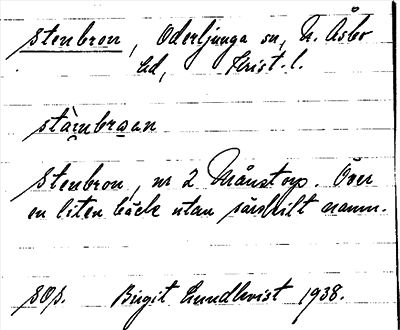 Stenbron, Oderljunga sn, N. Åsbo
hd, Krist. l.
stàɪnbrωən
Stenbron, nr 2 Månstorp. Över
en liten bäck utan särskilt namn.
SOp. Birgit Lundkvist 1938.